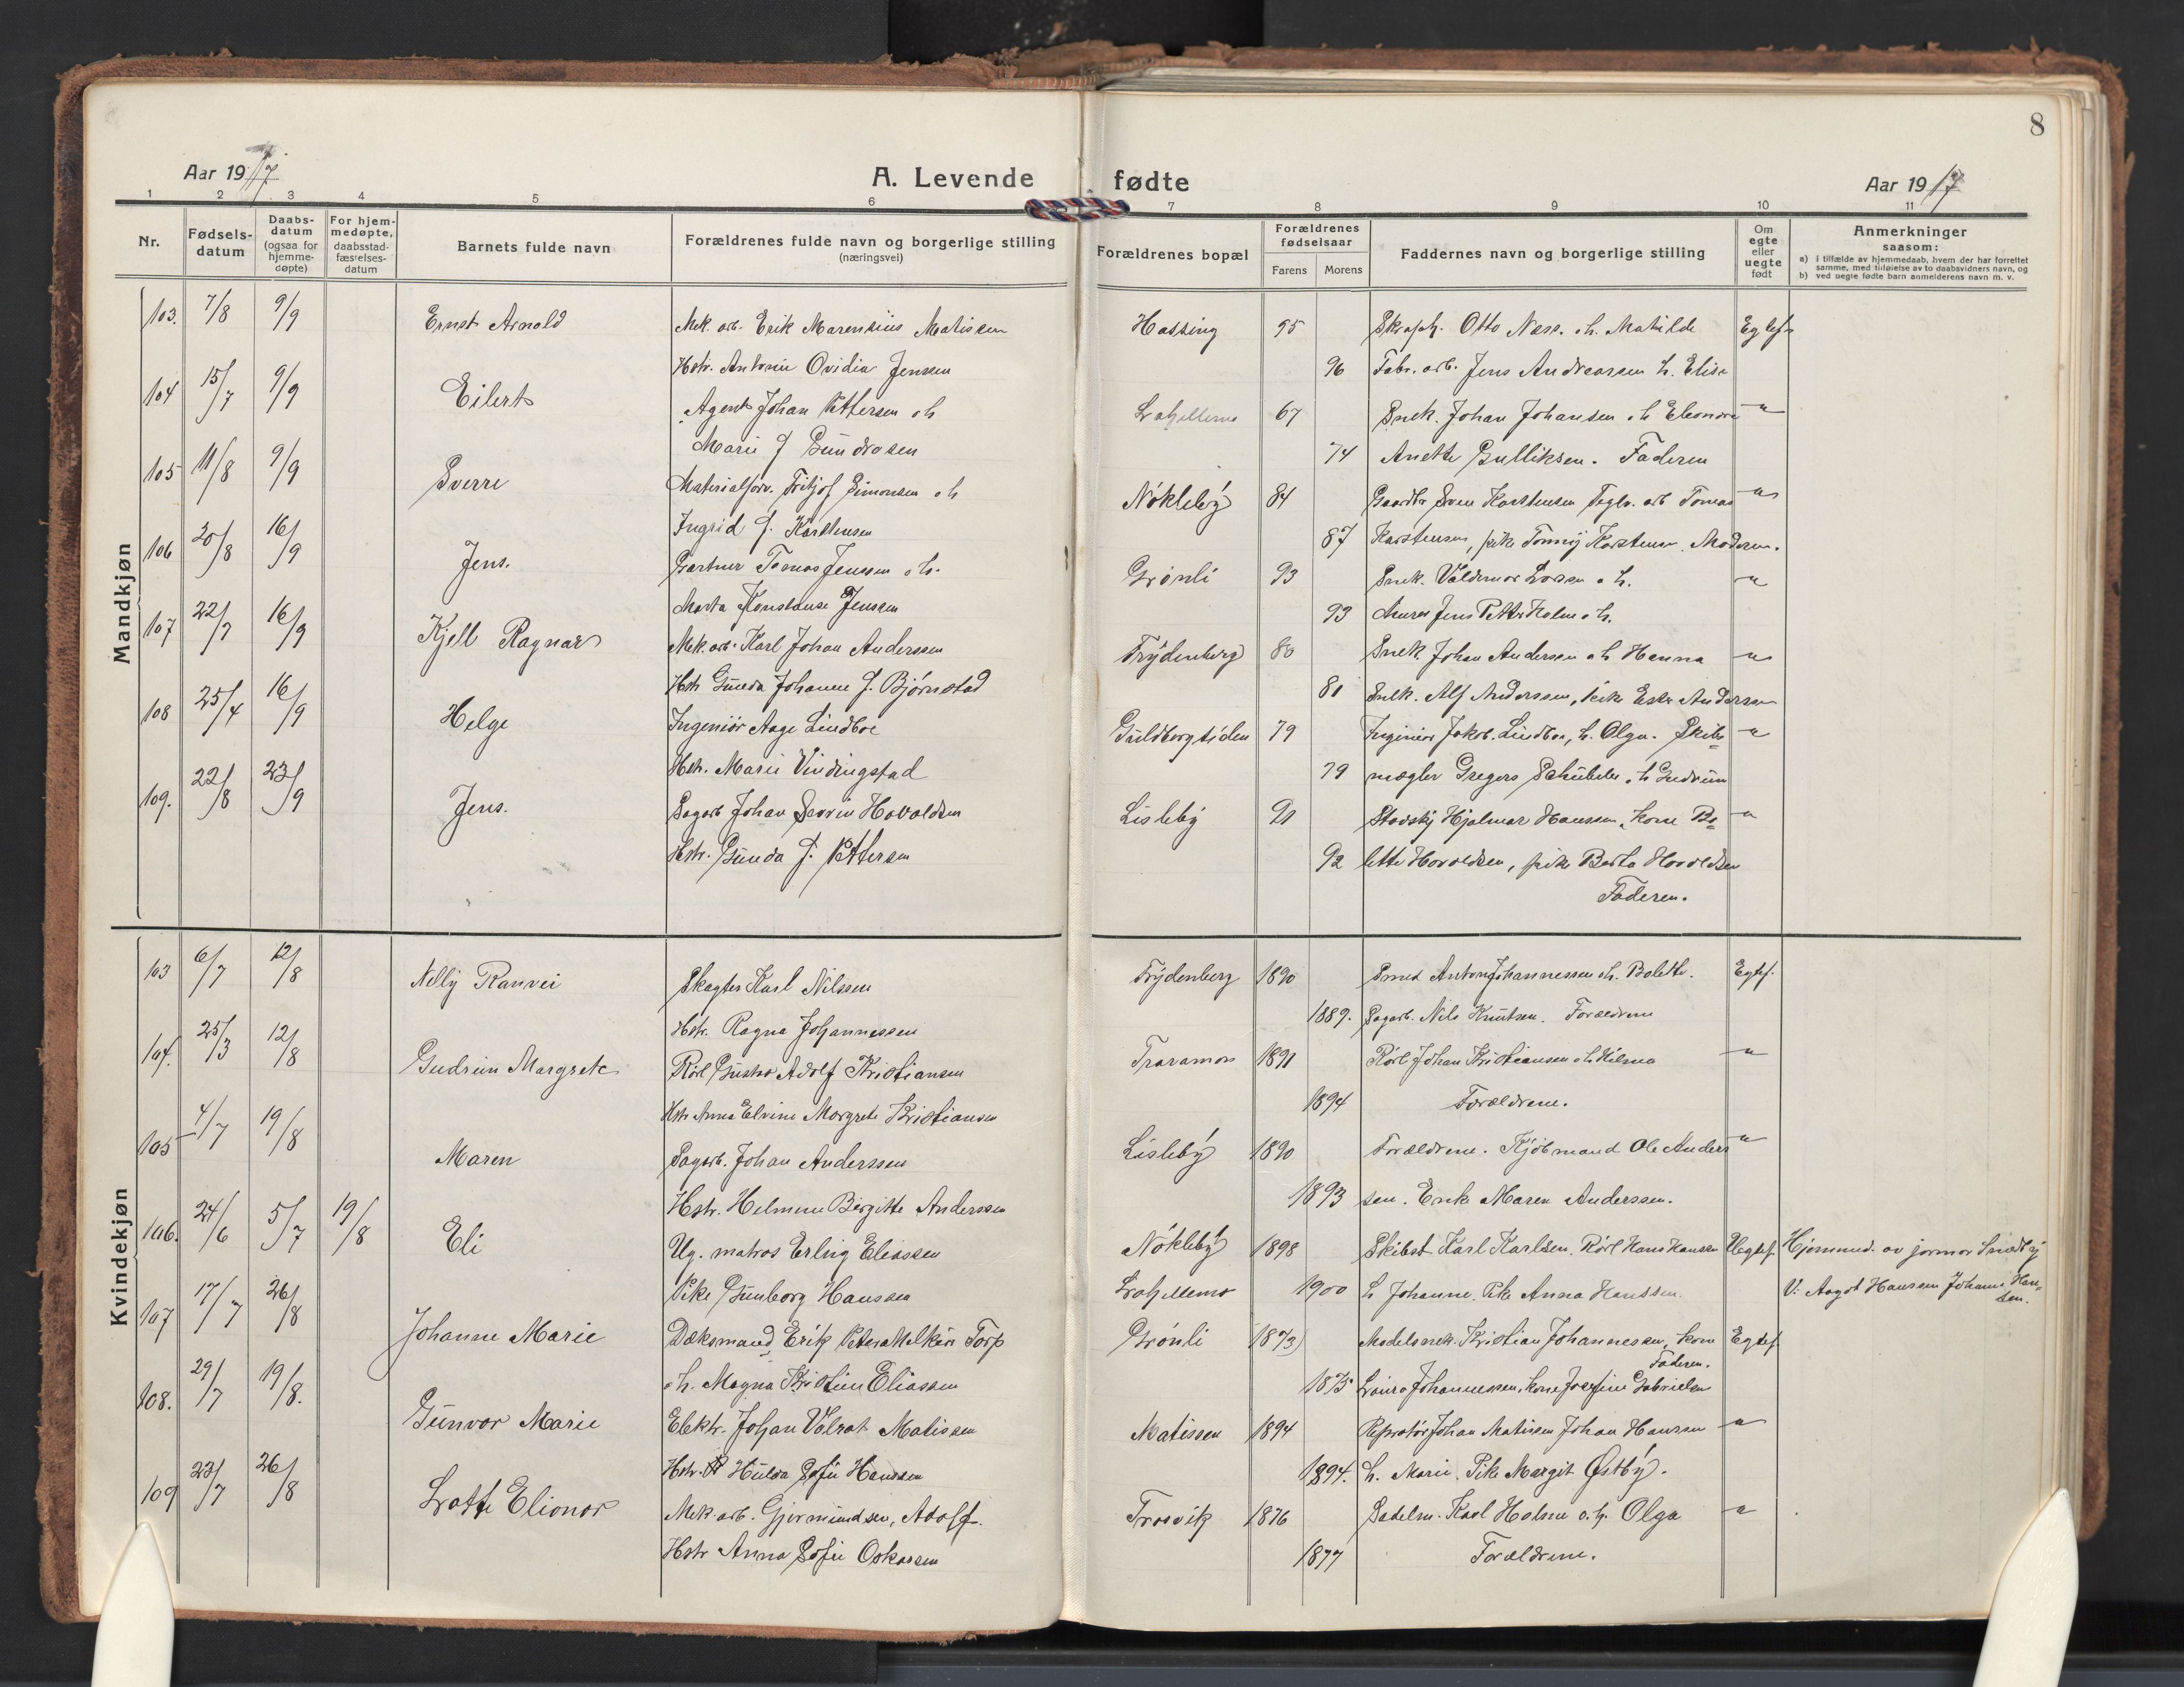 8
Aar 1917
A. Levende fødte
Aar 1917
1 2 3 4 5 6 7 8 9 10 11
Nr.
Fødsels-
datum
Daabs-
datum
(ogsaa for
hjemme-
døpte)
For hjem-
medøpte,
daabsstad-
fæstelses-
datum
Barnets fulde navn
Forældrenes fulde navn og borgerlige stilling
(næringsvei)
Forældrenes bopæl
Forældrenes
fødselsaar
Farens Morens
Faddernes navn og borgerlige stilling
Om
egte
eller
uegte
født
Anmerkninger
saasom:
a) i tilfælde av hjemmedaab, hvem der har forrettet
samme, med tilføielse av to daabsvidners navn, og
b) ved uegte fødte barn anmelderens navn m. v.
Mandkjøn
103. 7/8 9/9 Ernst Arnold Mek. arb. Erik Marensius Matissen 95 Otto Næss. o.h. Matilde Egtef.
Hstr. Antonie Ovidia Jensen 96 Fabr. arb. Jens Andreassen h. Elise
104 15/7 9/9 Eilert Agent Johan Pettersen o h 67 Snek. Johan Johansen o h Eleonora "
Marie J Gundrosen 74 Anette Gulliksen. Faderen
105 11/8 9/9 Sverre Materialforv. Fritjof Simonsen o h Nökleby 84 Gaardbr Sven Karstensen Teglv. arb Tomas "
Ingrid J. Karstensen 87 Karstensen, pike Tonny Karstensen Moderen.
106 20/8 16/9 Jens. Gartner Tomas Jenssen o h. Grönli 93 Snek. Valdemar Larsen o h. "
Marta Konstanse Jenssen 93 Murer Jens Petter Holm o h.
107 22/7 16/9 Kjell Ragnar Mek. arb. Karl Johan Anderssen Frydenberg 80 Snek Johan Andersen o h Hanna "
Hstr Gunda Johanne J. Bjørnstad 81 Snek. Alf Anderssen, pike Ester Anderssen
108 25/4 16/9 Helge Ingeniör Aage Lindboe Guldbergsiden 79 Ingeniör Jakob Lindboe, h. Olga. Skibs= "
Hstr. Marie Vindingstad 79 mægler Gregers Schübeler o h Gudrun
109. 22/8 23/9 Jens. Sagarb Johan Severin Hovoldsen Lisleby 91 Hjalmar Hanssen, kone Bo= "
Hstr. Gunda J. Pettersen 92 lette Hovoldsen, pike Berta Hovoldsen
Faderen.
Kvindekjøn
103 6/7 12/8 Nelly Ranvei Karl Nilssen Frydenberg 1890 Smed Anton Johannessen o h. Bolette. Egtef.
Hstr. Ragna Johannessen 1889. Sagarb. Nils Knutsen. Forældrene
104. 25/3 12/8 Gudrun Margrete Rörl Gustav Adolf Kristiansen Traramoen 1891 Rörl Johan Kristiansen o h Hilma "
Hstr Anna Elvine Margrete Kristiansen 1894 Forældrene.
105 4/7 19/8 Maren Sagarb. Johan Anderssen Lisleby 1890 Forældrene. Kjöbmand Ole Anders "
Hstr. Helmine Birgitte Anderssen 1893 sen. Enke Maren Anderssen.
106. 24/6 5/7 19/8 Eli Ug. matros Erling Eliassen Nökleby 1898 Skibst. Karl Karlsen. Rörl Hans Hansen Uegtef. Hjemmed. av jormor Smedby
Pike Gunborg Hanssen 1900 h Johanne. Pike Anna Hanssen. V: Aagot Hansen Johanne Han=
sen.
107 17/7 26/8 Johanne Marie Dæksmand Erik Torp Grönli 1873 Modelsnek. Kristian Johannessen, kone Egtef
Faderen.
o h. Magna Kristine Eliassen 1875 Laura Johannessen, kone Josefine Gabrielsen
108. 29/7 19/8. Gunvor Marie Elektr. Johan Valrat Matissen Matissen 1894 Johan Matissen Johan Hanssen "
Hstr. Hulda Sofie Hanssen 1894. h. Marie. Pike Margit Østby.
109 23/7 26/8 Lotte Elionor Mek. arb. Gjermundsen, Adolf. Trosvik 1876 Sadelm. Karl Holm o. h. Olga "
Hstr Anna Sofie Oskarsen 1877 Forældrene.